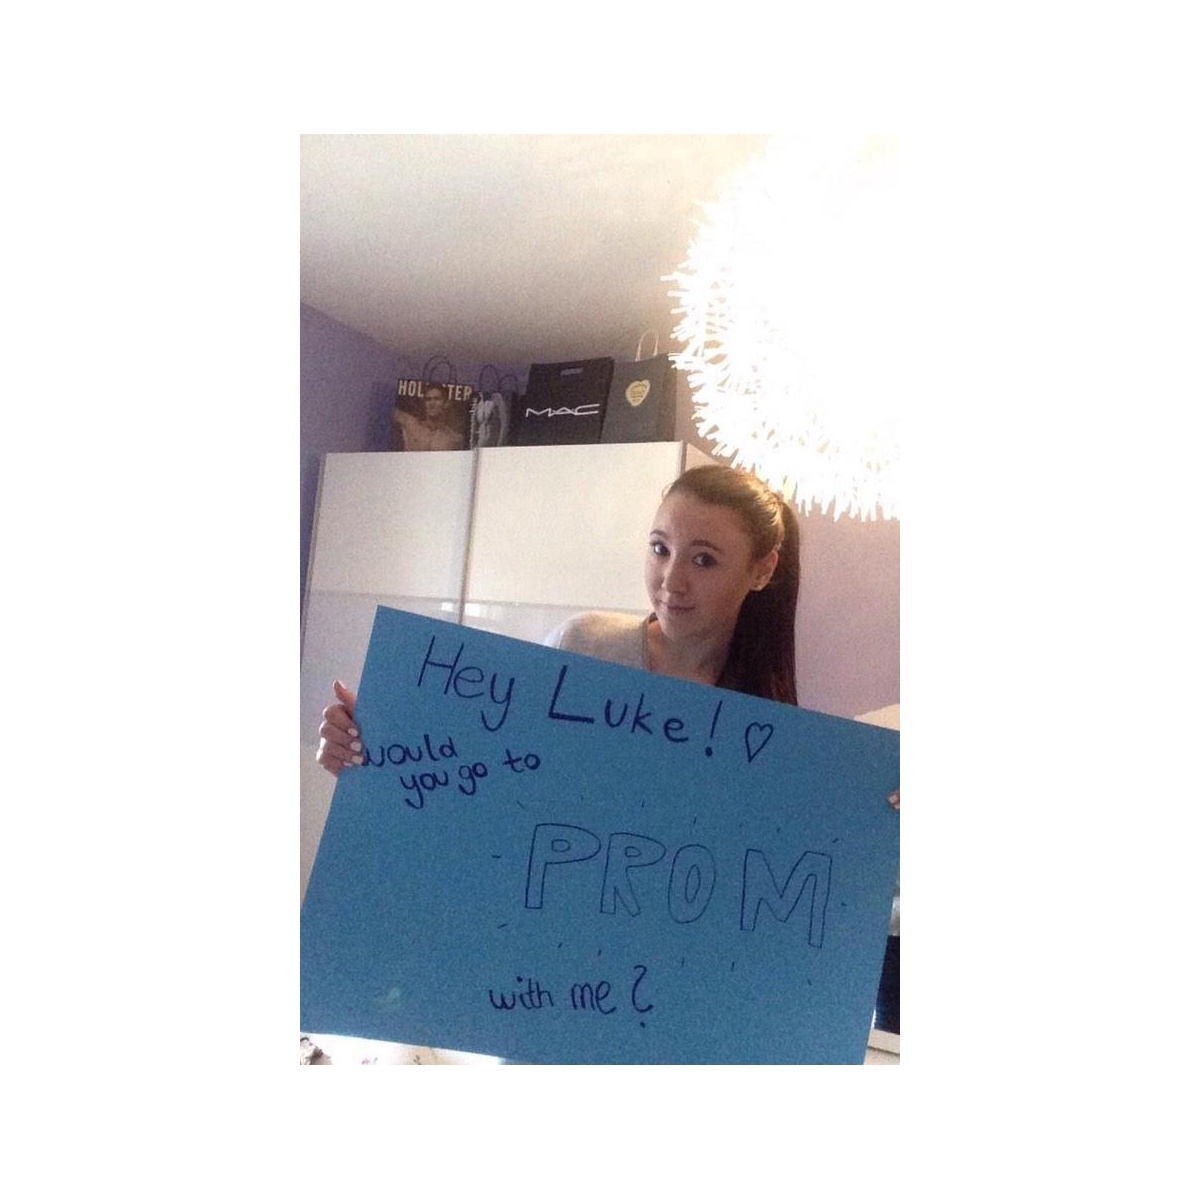 HOLLISTER
MAC
Hey Luke! ♡
would
you go to
PROM
with me?